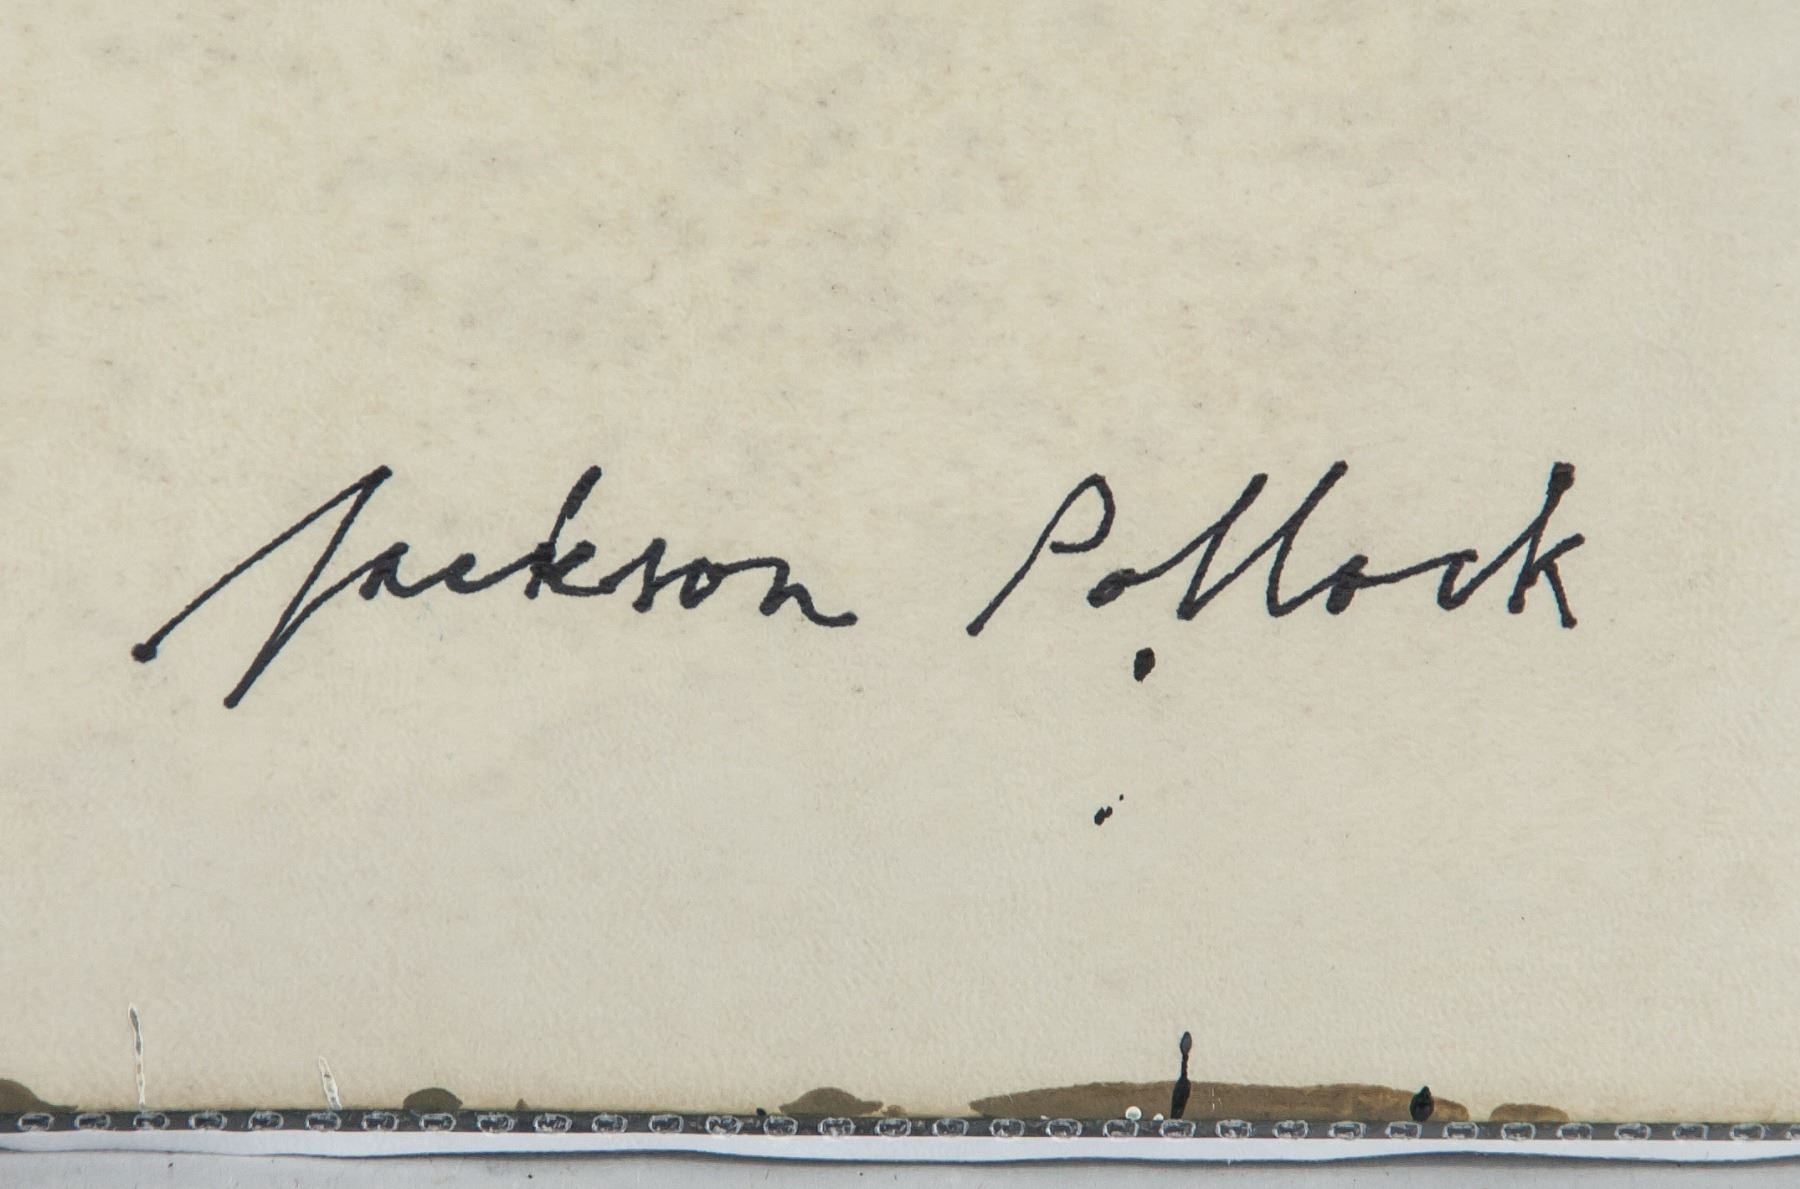 Jackson Pollock